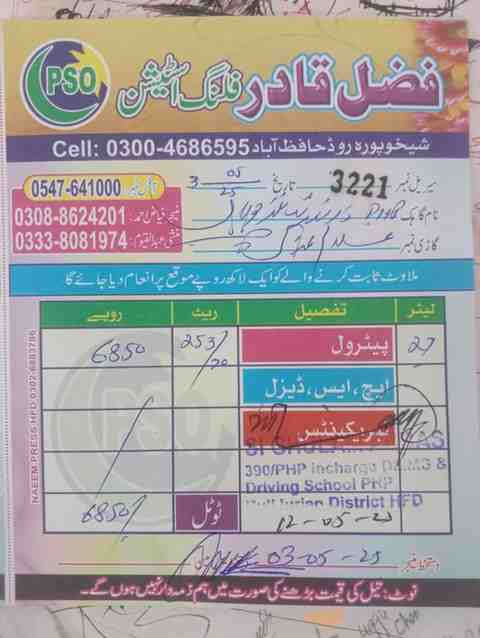 PSO
فضل قادر فلنگ اسٹیشن
شیخوپورہ روڈ حافظ آباد Cell: 0300-4686595
سیریل نمبر 3221 تاریخ 3 05 25
0547-641000
منیجر فیاض احمد: 0308-8624201
منشی عبدالقیوم: 0333-8081974
نام گاہک
گاڑی نمبر
ملاوٹ ثابت کرنے والے کو ایک لاکھ روپے موقع پر انعام دیا جائے گا
لیٹر تفصیل ریٹ روپے
27 پیٹرول 253/20 6850
ایچ، ایس، ڈیزل
لبریکینٹس
390/PHP Incharge
Driving School PHP
District HFD
ٹوٹل 6850/
12-05-25
دستخط منیجر 03-05-25
نوٹ: تیل کی قیمت بڑھنے کی صورت میں ہم ذمہ دار نہیں ہوں گے۔
NAEEM PRESS HFD 0302-6883786